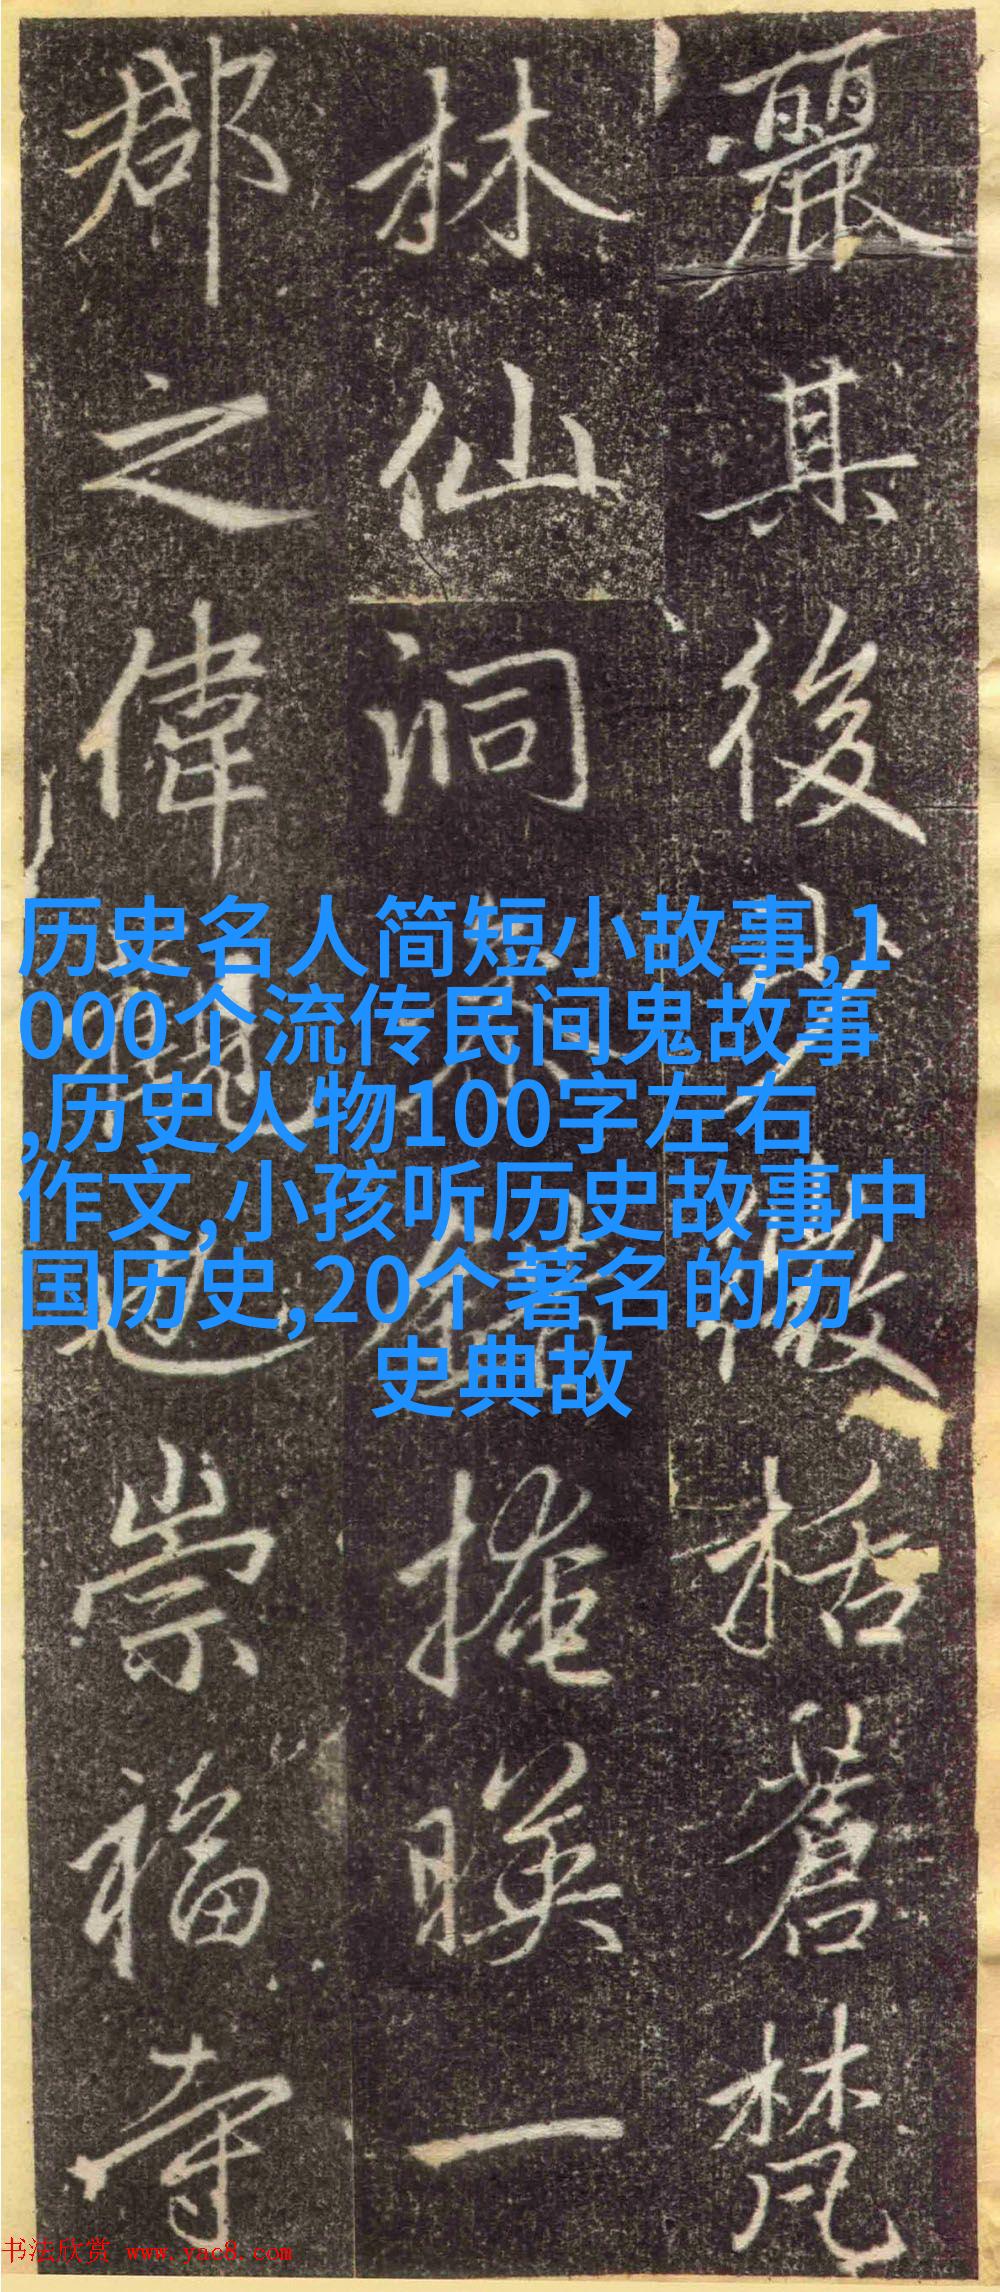 麗其後少微括蒼梵
林仙洞掩暎一
郡之偉觀也崇福寺
历史名人简短小故事,1
000个流传民间鬼故事
,历史人物100字左右
作文,小孩听历史故事中
国历史,20个著名的历
史典故
书法欣赏 www.yac8.com